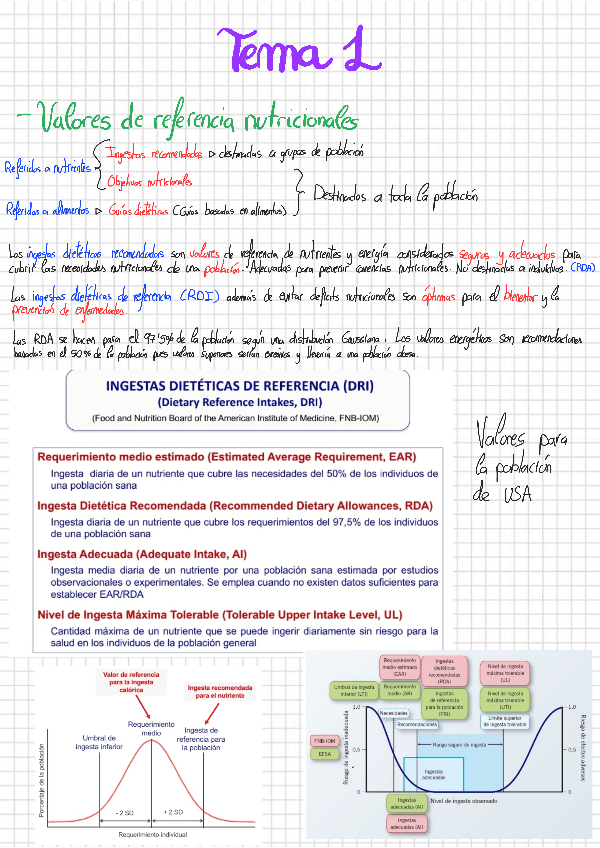 Tema 1
- Valores de referencia nutricionales
Ingestas recomendadas ▷ destinadas a grupos de población
Referidos a nutrientes
Objetivos nutricionales
Destinados a toda la población
Referidos a alimentos ▷ Guías dietéticas (Guías basadas en alimentos)
Las ingestas dietéticas recomendadas son valores de referencia de nutrientes y energía considerados seguros y adecuados para
cubrir las necesidades nutricionales de una población. Adecuadas para prevenir carencias nutricionales. No destinadas a individuos. (RDA)
Las ingestas dietéticas de referencia (RDI) además de evitar deficits nutricionales son óptimas para el bienestar y la
prevención de enfermedades.
Las RDA se hacen para el 97'5% de la población según una distribución Gaussiana. Los valores energéticos son recomendaciones
basadas en el 50% de la población pues valores superiores serían excesivos y llevaría a una población obesa.
INGESTAS DIETÉTICAS DE REFERENCIA (DRI)
(Dietary Reference Intakes, DRI)
(Food and Nutrition Board of the American Institute of Medicine, FNB-IOM)
Valores para
la población
de USA
Requerimiento medio estimado (Estimated Average Requirement, EAR)
Ingesta diaria de un nutriente que cubre las necesidades del 50% de los individuos de
una población sana
Ingesta Dietética Recomendada (Recommended Dietary Allowances, RDA)
Ingesta diaria de un nutriente que cubre los requerimientos del 97,5% de los individuos
de una población sana
Ingesta Adecuada (Adequate Intake, AI)
Ingesta media diaria de un nutriente por una población sana estimada por estudios
observacionales o experimentales. Se emplea cuando no existen datos suficientes para
establecer EAR/RDA
Nivel de Ingesta Máxima Tolerable (Tolerable Upper Intake Level, UL)
Cantidad máxima de un nutriente que se puede ingerir diariamente sin riesgo para la
salud en los individuos de la población general
Valor de referencia
para la ingesta
calórica
Ingesta recomendada
para el nutriente
Requerimiento
medio
Umbral de
ingesta inferior
Ingesta de
referencia para
la población
Porcentaje de la población
- 2 SD
+ 2 SD
Requerimiento individual
Requerimiento
medio estimado
(EAR)
Ingestas
dietéticas
recomendadas
(RDA)
Nivel de ingesta
máxima tolerable
(UL)
Umbral de ingesta
inferior (LTI)
Requerimiento
medio (AR)
Ingestas
de referencia
para la población
(PRI)
Nivel de ingesta
máxima tolerable
(UTI)
Necesidades
Recomendaciones
Límite superior
de ingesta tolerable
FNB-IOM
EFSA
Riesgo de ingesta inadecuada
1,0
0,5
0
Rango seguro de ingesta
Ingestas
adecuadas
1,0
0,5
0
Riesgo de efectos adversos
Ingestas
adecuadas (AI)
Nivel de ingesta observado
Ingestas
adecuadas (AI)